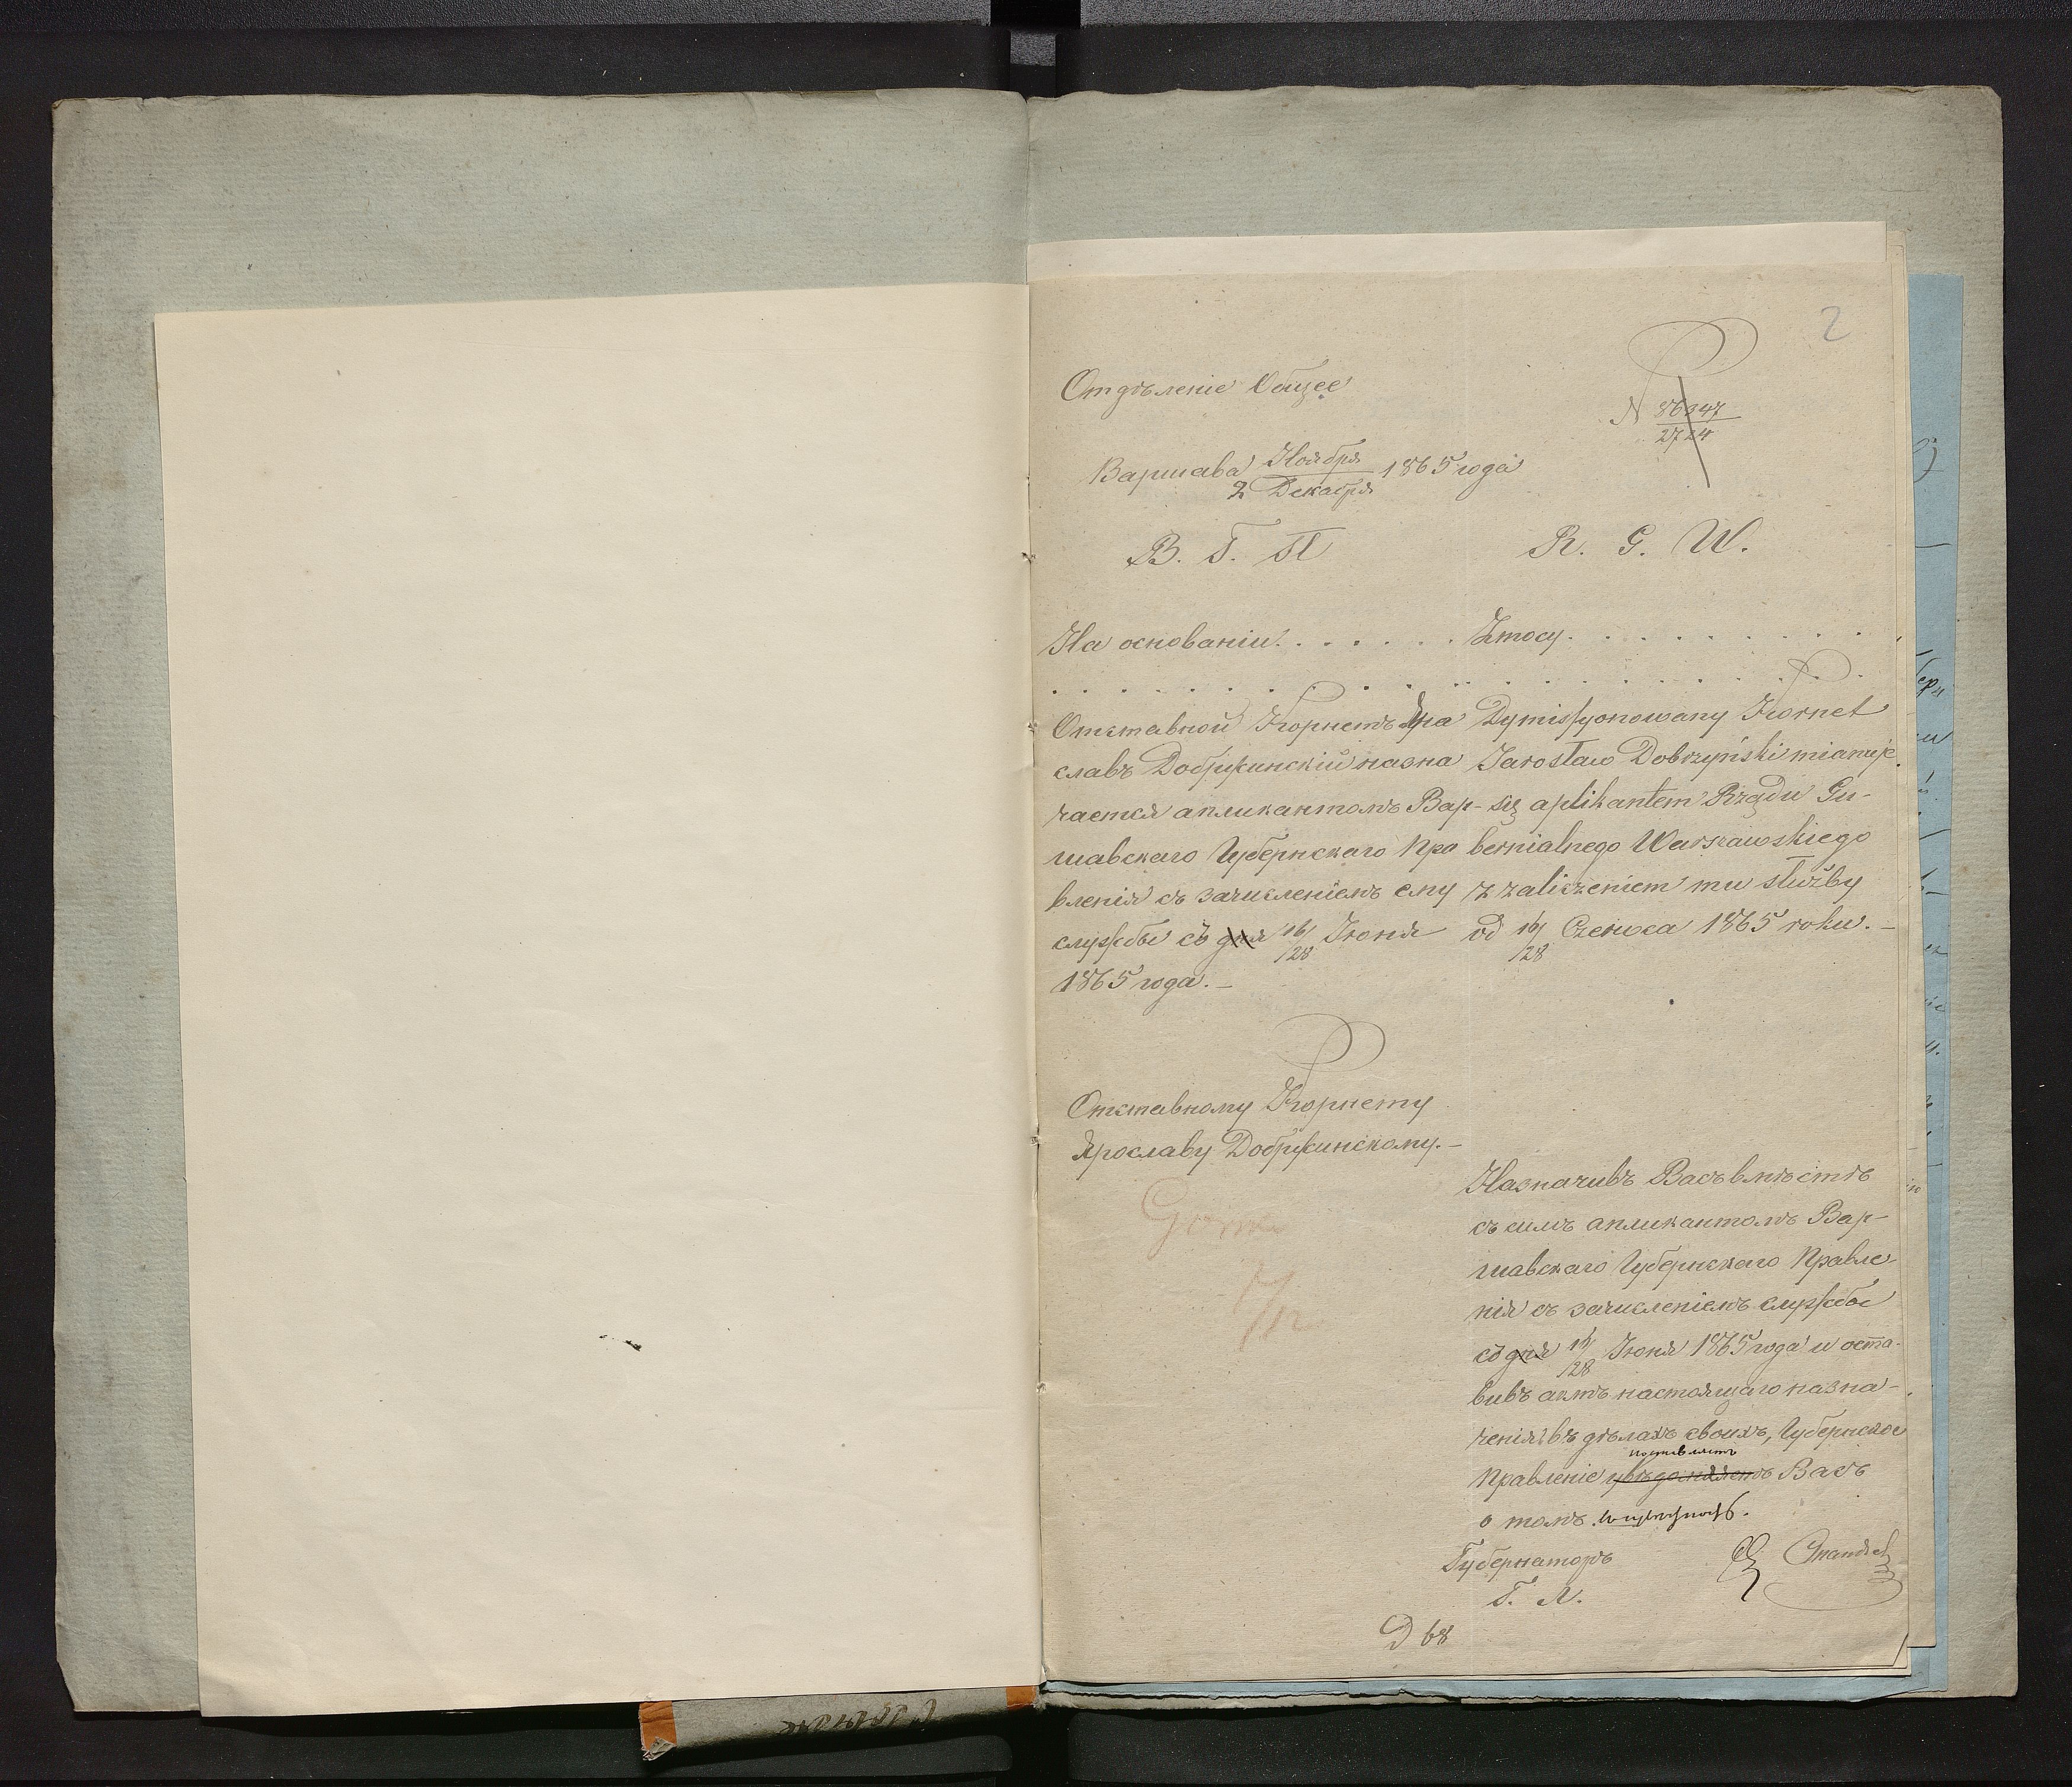 2
Отдѣленіе Общее
N 86247
2724
Варшава Ноября 1865 года
2 Декабря
В. Г. П
R. G. W.
На основаніи . . . . . .
. . . . . . . . .
Отставной Корнетъ Яро
славъ Добржинскій назна
чается апликантомъ Вар-
шавскаго Губернскаго Пра
вленія съ зачисленіемъ ему
службы съ дня 16/28 Іюня
1865 года. —
Z mocy . . . . . . . . .
. . . . . . . . .
Dymissyonowany Kornet
Jarosław Dobrzyński mianuje
się aplikantem Rządu Gu-
bernialnego Warszawskiego
z zaliczeniem mu służby
od 16/28 Czerwca 1865 roku. —
Отставному Корнету
Ярославу Добржинскому. —
Назначивъ Васъ вмѣстѣ
съ симъ апликантомъ Вар-
шавскаго Губернскаго Правле
нія съ зачисленіемъ службы
со дня 16/28 Іюня 1865 года и оста-
вивъ актъ настоящаго назна-
ченія въ дѣлахъ своихъ, Губернское
Правленіе увѣдомляетъ Васъ
о томъ
Губернаторъ
Г. Л.
D 68